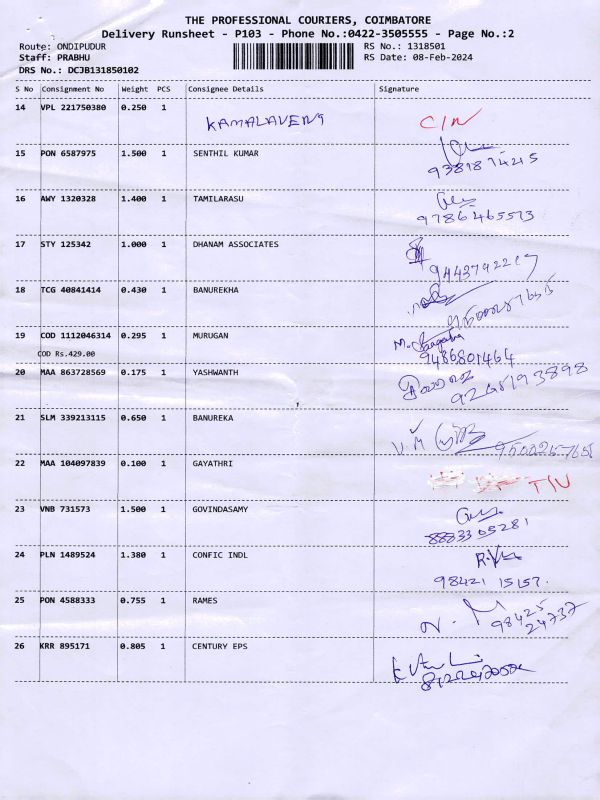 THE PROFESSIONAL COURIERS, COIMBATORE
Delivery Runsheet - P103 - Phone No.:0422-3505555 - Page No.:2
Route: ONDIPUDUR RS No.: 1318501
Staff: PRABHU RS Date: 08-Feb-2024
DRS No.: DCJB131850102
S No Consignment No Weight PCS Consignee Details Signature
14 VPL 221750380 0.250 1 KAMALAVENI C/N
15 PON 6587975 1.500 1 SENTHIL KUMAR
9381874215
16 AWY 1320328 1.400 1 TAMILARASU
9786465513
17 STY 125342 1.000 1 DHANAM ASSOCIATES
18 TCG 40841414 0.430 1 BANUREKHA
19 COD 1112046314 0.295 1 MURUGAN
COD Rs.429.00 9486801464
20 MAA 863728569 0.175 1 YASHWANTH
21 SLM 339213115 0.650 1 BANUREKA
22 MAA 104097839 0.100 1 GAYATHRI
23 VNB 731573 1.500 1 GOVINDASAMY
24 PLN 1489524 1.380 1 CONFIC INDL
98421 15157.
25 PON 4588333 0.755 1 RAMES
98425
24737
26 KRR 895171 0.805 1 CENTURY EPS